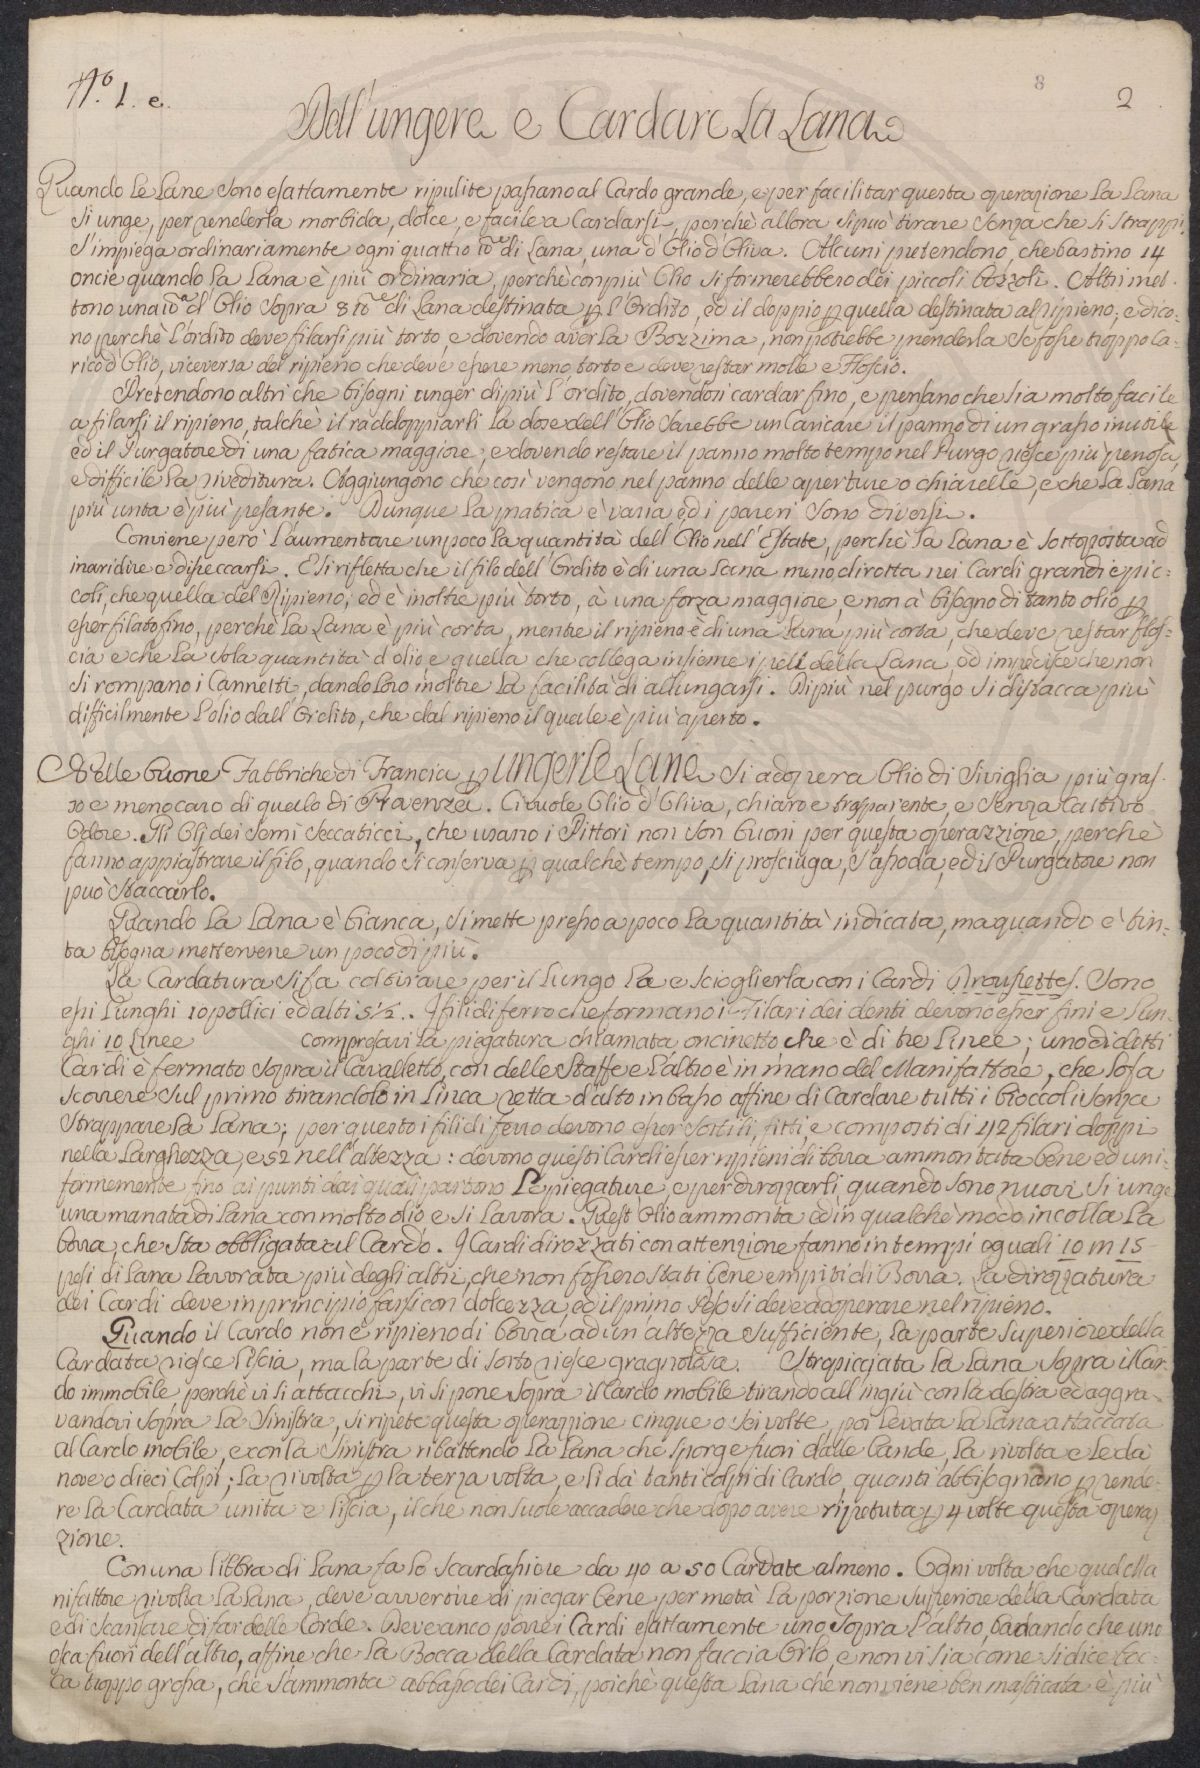 N.º 1. e. 8 2
Dell'ungere e Cardare La Lana
Quando Le Lane sono esattamente ripulite passano al Cardo grande, e per facilitar questa operazione La Lana
si unge, per renderla morbida, dolce, e facile a Cardarsi, perchè allora si può tirare senza che si strappi.
S'impiega ordinariamente ogni quattro di Lana, una d'Olio d'Oliva. Alcuni pretendono, che bastino 14
oncie quando La Lana è più ordinaria, perchè con più Olio si formerebbero dei piccoli bozzoli. Altri met-
tono una d'Olio sopra 8 di Lana destinata ꝑ L'Ordito, ed il doppio ꝑ quella destinata al ripieno; e dico-
no perchè L'ordito deve filarsi più torto, e dovendo aver La Bozzima, non potrebbe prenderla se fosse troppo ca-
rico d'Olio, viceversa del ripieno che deve essere meno torto e deve restar molle e Floscio.
Pretendono altri che bisogni unger di più L'ordito, dovendosi cardar fino, e pensano che sia molto facile
a filarsi il ripieno, talchè il raddoppiarli La dose dell'Olio sarebbe un Caricare il panno di un grasso inutile
ed il Purgatore di una fatica maggiore, e dovendo restare il panno molto tempo nel Purgo riesce più penosa,
e difficile La riveditura. Aggiungono che così vengono nel panno delle aperture o chiarelle, e che La Lana
più unta è più pesante. Dunque La pratica è varia ed i pareri sono diversi.
Conviene però L'aumentare un poco La quantità dell'Olio nell'Estate, perchè La Lana è sottoposta ad
inaridire e diseccarsi. E si rifletta che il filo dell'Ordito è di una Lana meno dirotta nei Cardi grandi e pic-
coli, che quella del Ripieno; ed è inoltre più torto, à una forza maggiore, e non à bisogno di tanto olio ꝑ
esser filato fino, perchè La Lana è più corta, mentre il ripieno è di una Lana più corta, che deve restar flos-
cia e che La sola quantità d'olio e quella che collega insieme i peli della Lana, ed impedisce che non
si rompano i Cannelli, dando Loro inoltre La facilità di allungarsi. Di più nel purgo si distacca più
difficilmente L'olio dall'Ordito, che dal ripieno il quale è più aperto.
Nelle buone Fabbriche di Francia ꝑ ungerle Lane si adopera Olio di Siviglia più gras-
so e meno caro di quelo di Provenza. Ci vuole Olio d'Oliva, chiaro e trasparente, e senza Cattivo
Odore. Gli Olj dei semi seccaticci, che usano i Pittori non son buoni per questa operazzione, perchè
fanno appiastrare il filo, quando si conserva ꝑ qualchè tempo, si prosciuga, s'assoda, ed il Purgatore non
può staccarlo.
Quando La Lana è bianca, si mette presso a poco La quantità indicata, ma quando è tin-
ta bisogna mettervene un poco di più.
La Cardatura si fa col tirare per il Lungo La e scioglierla con i Cardi Sono
essi Lunghi 10 pollici ed alti 5½. I fili di ferro che formano i Filari dei denti devono esser fini e Lun-
ghi 10 Linee compresavi La piegatura chiamata oncinetto che è di tre Linee; uno di detti
Cardi è fermato sopra il Cavalletto, con delle staffe e L'altro è in mano del Manifattore, che Lo fa
scorrere sul primo tirandolo in Linea retta d'alto in basso affine di Cardare tutti i bioccoli senza
strappare La Lana; per questo i fili di ferro devono esser sottili, fitti, e composti di 42 filari doppi
nella Larghezza, e 52 nell'altezza: devono questi Cardi esser ripieni di borra ammontata bene ed uni-
formemente fino ai punti dai quali partono Le piegature, e per dirozzarli quando sono nuovi si unge
una manata di Lana con molto olio e si Lavora. Quest'Olio ammonta ed in qualchè modo incolla La
borra, che sta obbligata al Cardo. I Cardi dirozzati con attenzione fanno in tempi eguali 10 in 15
pesi di Lana Lavorata più degli altri, che non fossero stati bene empiti di Borra. La dirozzatura
dei Cardi deve in principio farsi con dolcezza, ed il primo Peso si deve adoperare nel ripieno.
Quando il Cardo non è ripieno di borra ad un'altezza sufficiente, La parte superiore della
Cardata riesce Liscia, ma la parte di sotto riesce gragnolosa. Stropicciata La Lana sopra il Car-
do immobile perchè vi si attacchi, vi si pone sopra il Cardo mobile tirando all'ingiù con la destra ed aggra-
vandovi sopra La sinistra, si ripete questa operazzione cinque o sei volte, poi Levata La Lana attaccata
al Cardo mobile, e con la sinistra ribattendo La Lana che sporge fuori dalle bande, La rivolta e Le dà
nove o dieci Colpi; La rivolta ꝑ la terza volta, e li dà tanti colpi di Cardo, quanti abbisognano ꝑ rende-
re La Cardata unita e liscia, il che non suole accadere che dopo avere ripetuta ꝑ 4 volte questa operaz-
zione.
Con una Libbra di Lana fa Lo scardassiere da 40 a 50 Cardate almeno. Ogni volta che quel Ma-
nifattore rivolta La Lana, deve avvertire di piegar bene per metà La porzione superiore della Cardata
e di scansare di far delle Corde. Deve anco porre i Cardi esattamente uno sopra L'altro, badando che uno
esca fuori dell'altro, affine che La Bocca della Cardata non faccia Orlo, e non vi sia come si dice boc-
ca troppo grossa, che s'ammonta abbasso dei Cardi, poichè questa Lana che non viene ben masticata è più